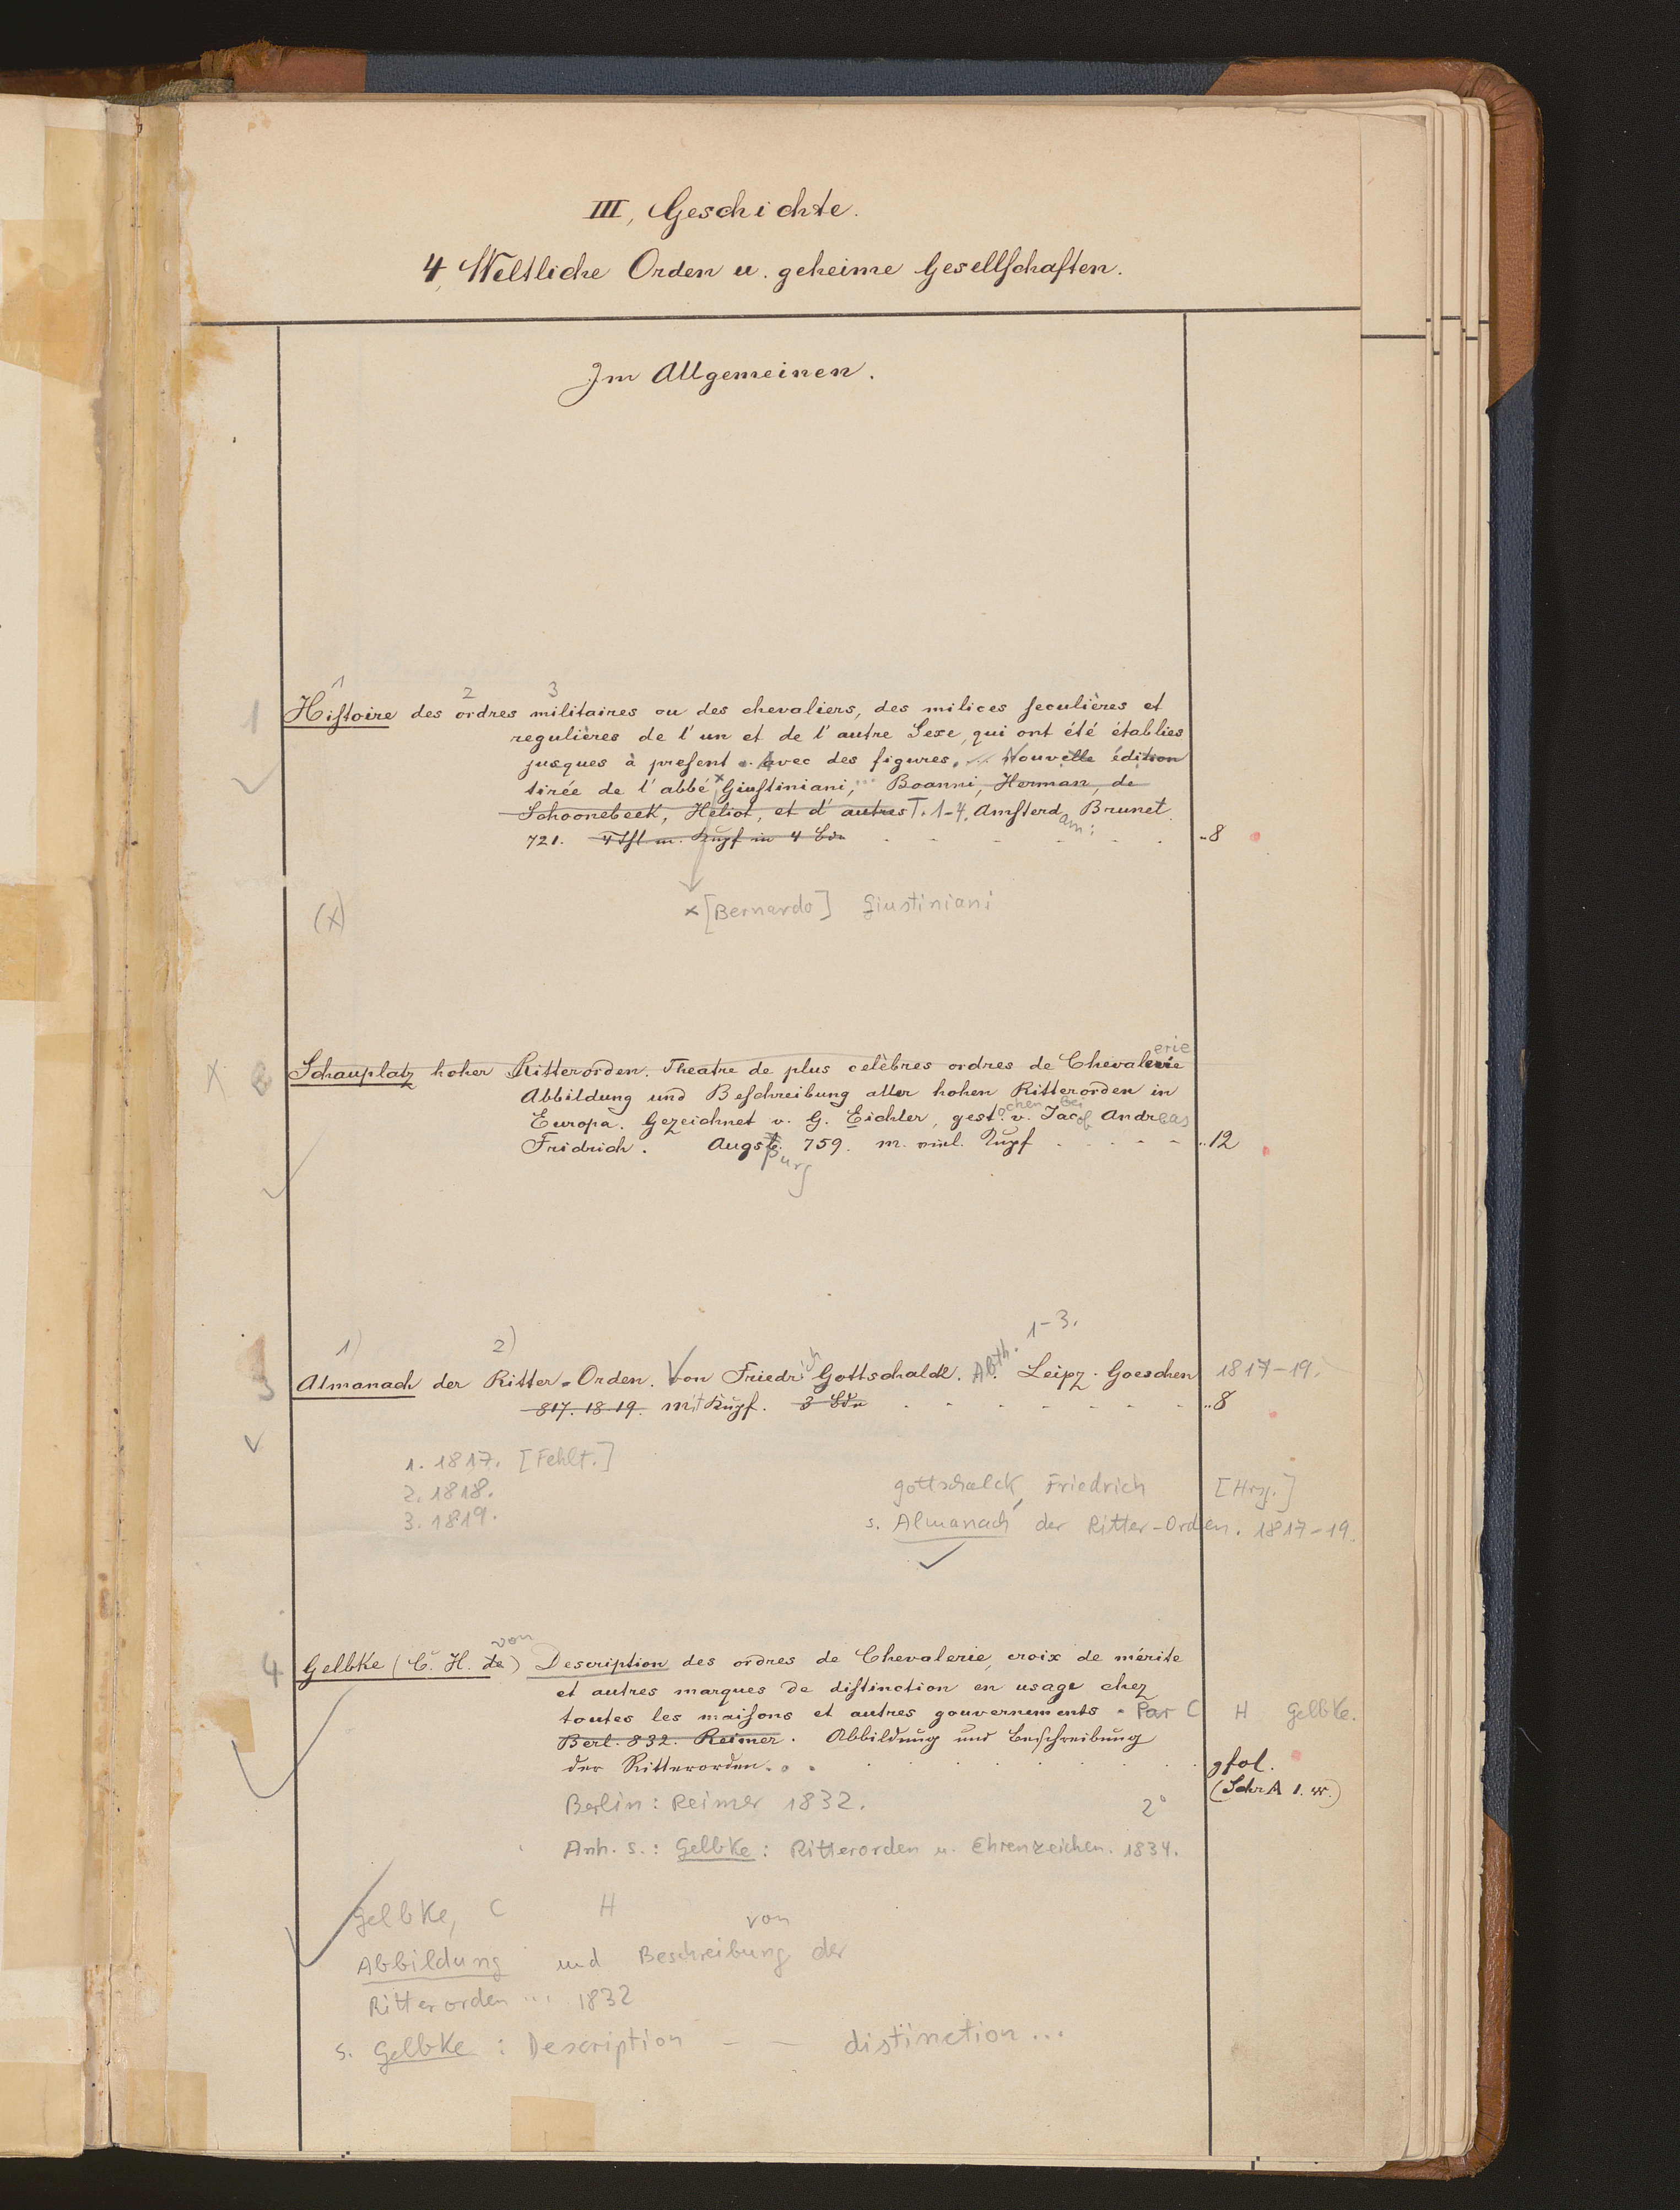 III, Geschichte.
4, Weltliche Orden u. geheime Gesellschaften.
Im Allgemeinen.
1 2 3
1 Histoire des ordres militaires ou des chevaliers, des milices seculières et
regulières de l'un et de l'autre Sexe, qui ont été établies
jusques à present. Avec des figures. ... Nouvelle édition
tirée de l'abbé × Giustiniani, ... Boanni, Herman, de
Schoonebeek, Heliot, et d'autres T. 1-4. Amsterdam: Brunet.
721. 4 Thl m. Kupf in 4 Bdn ..8
(x) × [Bernardo] Giustiniani
X Schauplatz hoher Ritterorden. Theatre de plus celèbres ordres de Chevalerie
Abbildung und Beschreibung aller hohen Ritterorden in
Europa. Gezeichnet v. G. Eichler, gestochen bei v. Jacob Andreas
Fridrich. Augsburg 759. m. viel. Kupf ..12
1-3.
1) 2)
3 Almanach der Ritter-Orden. Von Friedrich Gottschalck. Abth. Leipz. Goeschen 1817-19.
817. 18 19. mit Kupf. 3 Bdn ..8
1. 1817. [Fehlt.]
2. 1818. Gottschalck, Friedrich [Hrsg.]
3. 1819. s. Almanach der Ritter-Orden. 1817-19.
von
4 Gelbke (C. H. de) Description des ordres de Chevalerie, croix de mérite
et autres marques de distinction en usage chez
toutes les maisons et autres gouvernements. Par C H Gelbke.
Berl. 832. Reimer. Abbildung und Beschreibung
der Ritterorden. gfol.
(Schr A 1. )
Berlin: Reimer 1832. 2°
Anh. s.: Gelbke: Ritterorden u. Ehrenzeichen. 1834.
Gelbke, C H von
Abbildung und Beschreibung der
Ritterorden ... 1832
s. Gelbke: Description – – distinction...